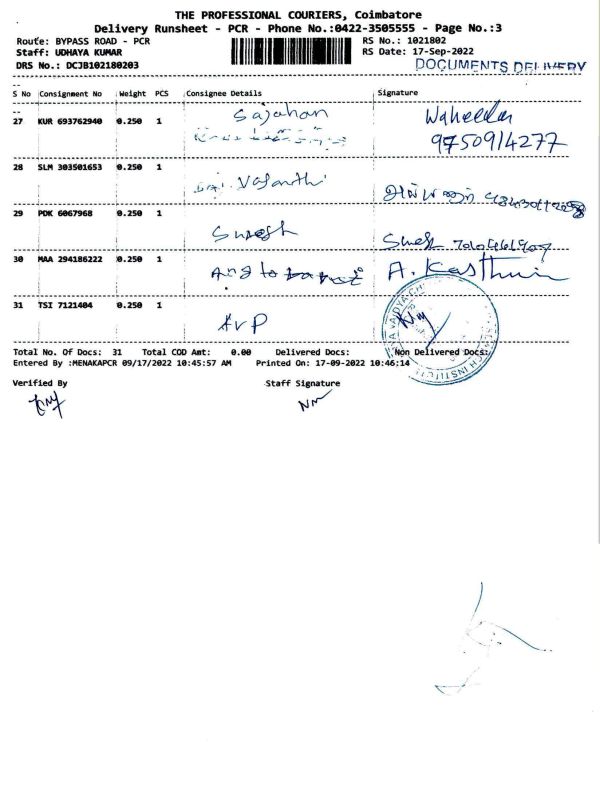 THE PROFESSIONAL COURIERS, Coimbatore
Delivery Runsheet - PCR - Phone No.:0422-3505555 - Page No.:3
Route: BYPASS ROAD - PCR RS No.: 1021802
Staff: UDHAYA KUMAR RS Date: 17-Sep-2022
DRS No.: DCJB102180203 DOCUMENTS DELIVERY
S No Consignment No Weight PCS Consignee Details Signature
27 KUR 693762940 0.250 1 Sajahan Waheeda
9750914277
28 SLM 303501653 0.250 1 Vasanthi
29 PDK 6067968 0.250 1 Suresh
30 MAA 294186222 0.250 1 A. Kasthuri
31 TSI 7121404 0.250 1 AVP
Total No. Of Docs: 31 Total COD Amt: 0.00 Delivered Docs: Non Delivered Docs:
Entered By :MENAKAPCR 09/17/2022 10:45:57 AM Printed On: 17-09-2022 10:46:14
Verified By Staff Signature